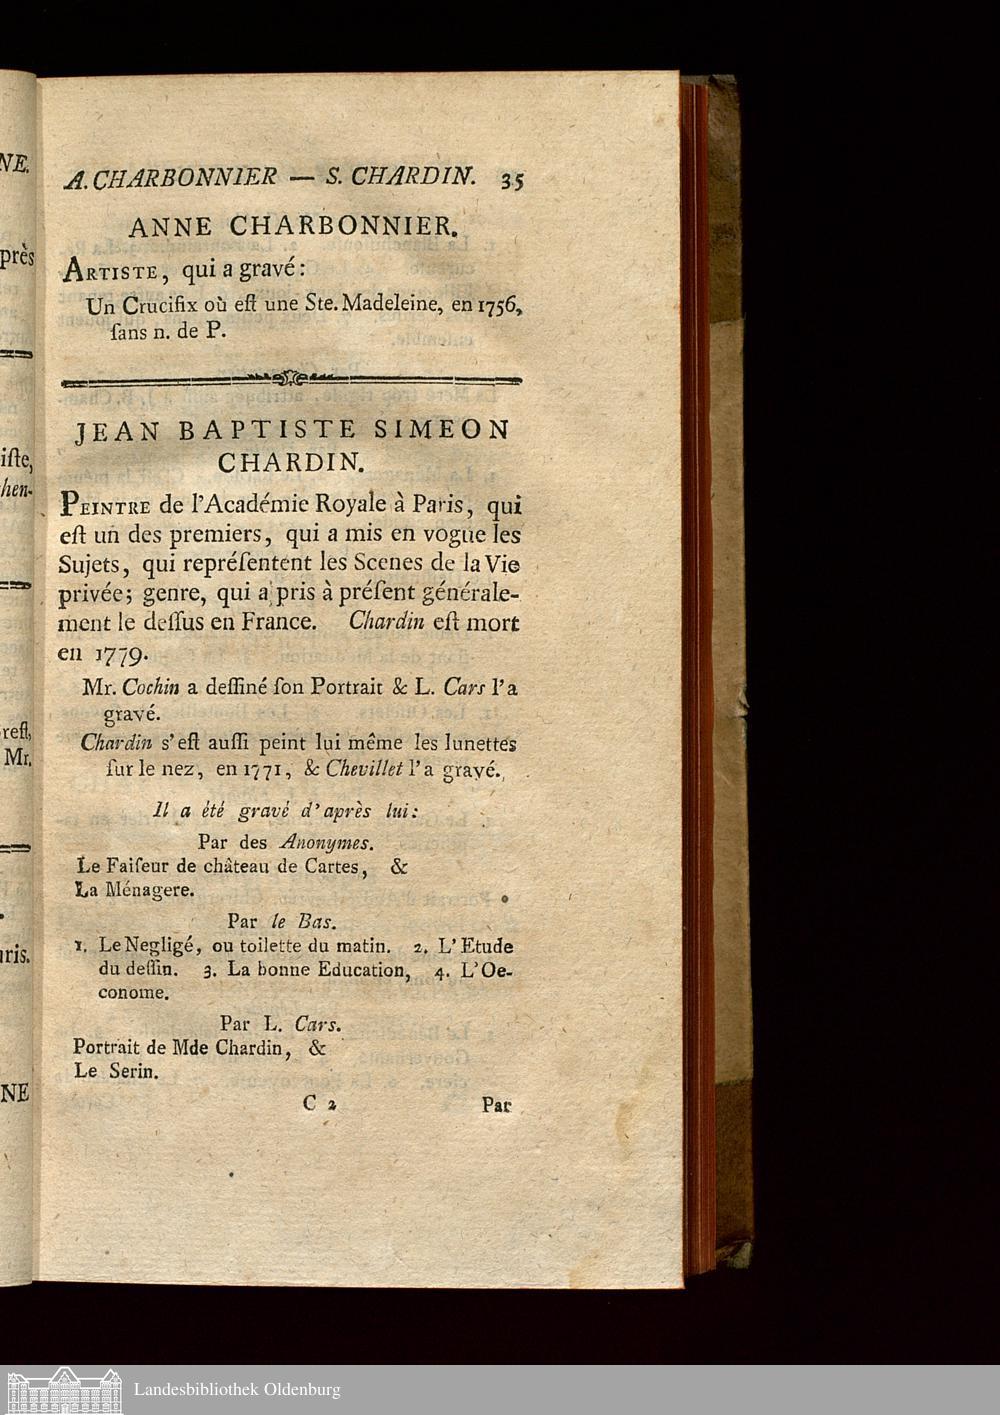 NE.
près
iſte,
hen-
reſt,
Mr.
ris.
NE
A. CHARBONNIER — S. CHARDIN. 35
ANNE CHARBONNIER.
ARTISTE, qui a gravé:
Un Crucifix où eſt une Ste. Madeleine, en 1756,
ſans n. de P.
JEAN BAPTISTE SIMEON
CHARDIN.
PEINTRE de l'Académie Royale à Paris, qui
eſt un des premiers, qui a mis en vogue les
Sujets, qui repréſentent les Scenes de la Vie
privée; genre, qui a pris à préſent générale-
ment le deſſus en France. Chardin eſt mort
en 1779.
Mr. Cochin a deſſiné ſon Portrait & L. Cars l'a
gravé.
Chardin s'eſt auſſi peint lui même les lunettes
ſur le nez, en 1771, & Chevillet l'a gravé.
Il a été gravé d'après lui:
Par des Anonymes.
Le Faiſeur de château de Cartes, &
La Ménagere.
Par le Bas.
1. Le Negligé, ou toilette du matin. 2. L'Etude
du deſſin. 3. La bonne Education, 4. L'Oe-
conome.
Par L. Cars.
Portrait de Mde Chardin, &
Le Serin.
C 2 Par
Landesbibliothek Oldenburg